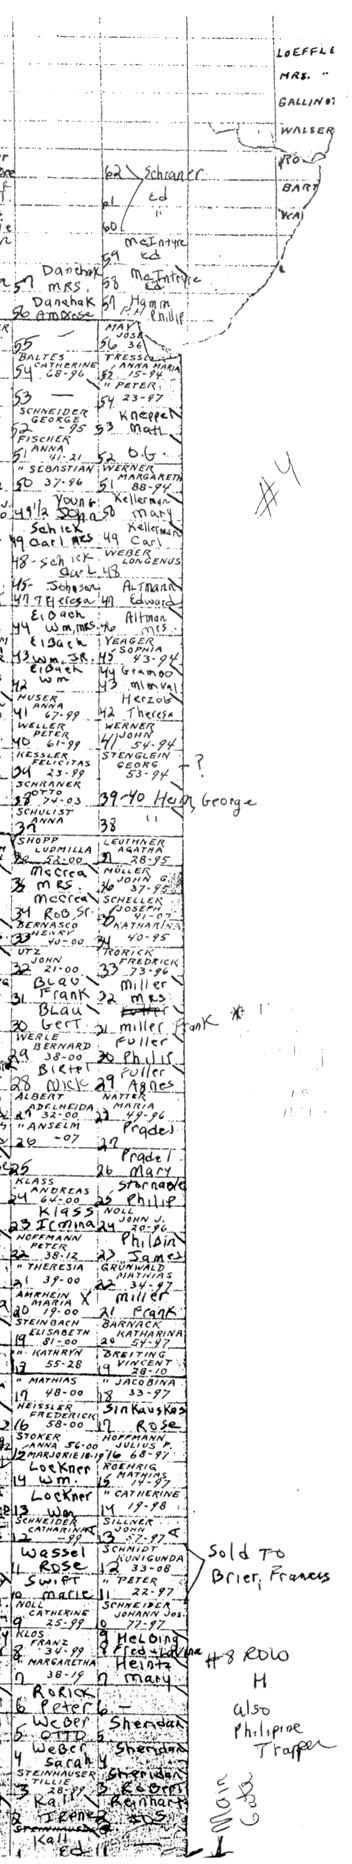 LOEFFLE
MRS. "
GALLINOT
WALSER
RO
BART
62 Schraner
61 Ed
60 "
McIntyre
59 Ed
Danehak McIntyre
57 MRS. 58 Ed
Danehak 57 Hamm
56 Ambrose P.H. Phillip
MAY
JOSE
55 — 56 36
BALTES TRESSEL
CATHERINE ANNA MARIA
54 68-96 15-94
" PETER
53 — 54 23-97
SCHNEIDER Kneppel
GEORGE
52 -95 53 Matt
FISCHER
ANNA
51 41-21 52 O.G.
" SEBASTIAN WERNER
MARGARETH
50 37-96 51 88-94
Young Kellerman
49 1/2 John 50 Mary
Schick Kellerman
49 Carl Mrs 49 Carl
48 - Schick WEBER
LONGENUS
Carl 48
45- Johnson ALTMANN
47 Theresa 47 Edward
Elbach Altman
44 Wm, Mrs. 46 Mrs
Elbach YEAGER
SOPHIA
43 Wm. JR. 45 43-94
Elbach 44 Gramoo
42 Wm 43 Minval
HUSER Herzob
ANNA
41 67-99 42 Theresa
WELLER WERNER
PETER JOHN
40 61-99 41 54-94
KESSLER STENGLEIN
FELICITAS GEORG - ?
39 23-99 53-94
SCHRANER
OTTO
38 74-03 39-40 Hein, George
SCHULIST
ANNA
37 38 "
SHOPP LEUTHNER
LUDMILLA AGATHA
52-00 37 28-95
McCrea MÜLLER
JOHN G.
35 MRS. 36 37-95
McCrea SCHELLER
JOSEPH
34 Rob, Sr. 35 41-07
BERNASCO KATHARINA
HENRY
33 40-00 34 40-95
UTZ RORICK
JOHN FREDRICK
32 21-00 33 73-96
BLAU Miller
31 Frank 32 MRS
BLAU
30 Gert 31 Miller, Frank *
WERLE Fuller
BERNARD
29 38-00 30 Philip
Birtel Fuller
28 Nick 29 Agnes
ALBERT NATTER
ADELHEIDA MARIA
27 32-00 49-96
" ANSELM Pradel
26 -07 27
Pradel
25 26 Mary
KLASS Stornable
ANDREAS
24 64-00 25 Philip
Klass NOLL
JOHN J.
23 Irmina 24 20-96
HOFFMANN Philbin
PETER
22 38-12 23 James
" THERESIA GRÜNWALD
MATHIAS
21 39-00 22 34-97
AMRHEIN X Miller
MARIA
20 19-00 21 Frank
STEINBACH BARNACK
ELISABETH KATHARINA
19 81-00 20 54-97
" KATHRYN BREITING
VINCENT
18 55-28 19 28-10
" MATHIAS " JACOBINA
17 48-00 18 33-97
HEISSLER Sinkauskas
FREDERICK
16 58-00 17 ROSE
STOKER HOFFMANN
ANNA 56-00 JULIUS F.
MARJORIE 18-19 16 68-97
Lockner ROEHRIG
MATHIAS
14 Wm. 15 14-97
Lockner " CATHERINE
13 Wm 14 19-98
SCHNEIDER SILLNER
CATHARINA JOHN
12 -99 13 57-97
Wassel SCHMIDT
KUNIGUNDA
11 ROSE 12 33-08
Swift " PETER
10 Marie 11 22-97
Sold To
Brier, Francis
NOLL SCHNEIDER
CATHERINE JOHANN JOS.
9 25-99 10 77-97
KLOS 9 Helbing
FRANZ
8 34-99 8 Fred + Lavina
" MARGARETHA Heintz
7 38-19 7 Mary
RORICK
6 Peter 6 —
Weber Sheridan
5 OTTO 5
Weber Sheridan
4 Sarah 4
STEINHAUSER Sheridan
TILLIE
3 28-99 3 Robert
Kall Reinhart
2 Irene 2 JOS
Kall
Ed
#4
#8 ROW
H
also
Philipine
Trapper
Main
Gate